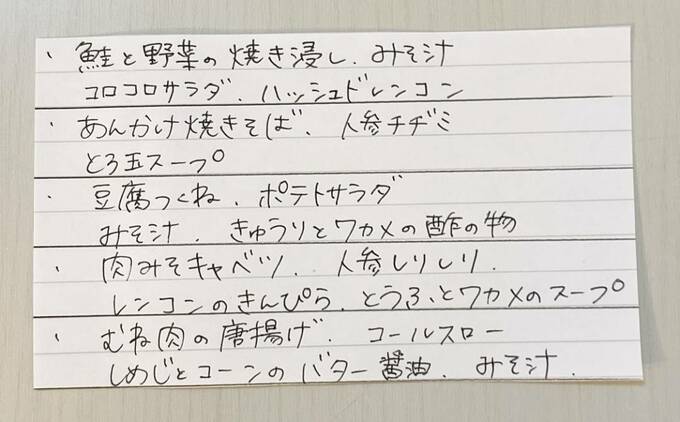 ・鮭と野菜の焼き浸し、みそ汁
コロコロサラダ、ハッシュドレンコン
・あんかけ焼きそば、人参チヂミ
とろ玉スープ
・豆腐つくね、ポテトサラダ
みそ汁、きゅうりとワカメの酢の物
・肉みそキャベツ、人参しりしり、
レンコンのきんぴら、とうふとワカメのスープ
・むね肉の唐揚げ、コールスロー
しめじとコーンのバター醤油、みそ汁、